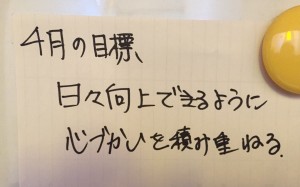 4月の目標、
日々向上できるように
心づかいを積み重ねる.